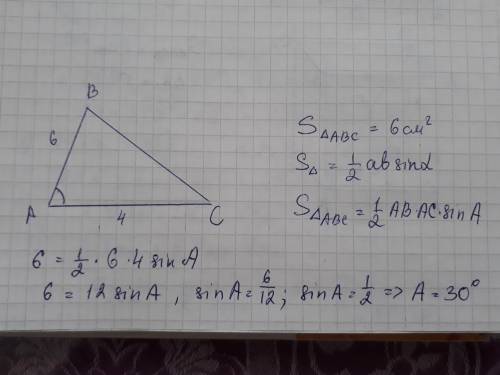 B
6
A
4
C
S△ABC = 6 см²
S△ = 1/2 ab sinα
S△ABC = 1/2 AB·AC·sin A
6 = 1/2 · 6 · 4 sin A
6 = 12 sin A , sin A = 6/12 ; sin A = 1/2 => A = 30°